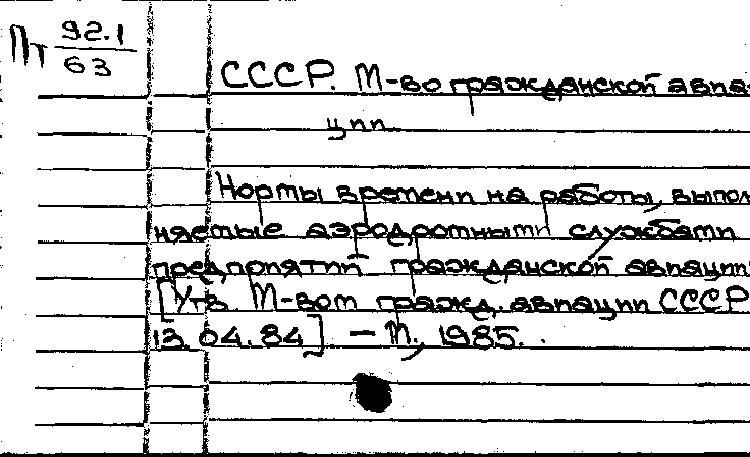 Пт 92.1
63
СССР. М-во гражданской авиа-
ции.
Нормы времени на работы, выпол-
няемые аэродромными службами
предприятий гражданской авиации.
[Утв. М-вом гражд. авиации СССР
13.04.84] - М., 1985.